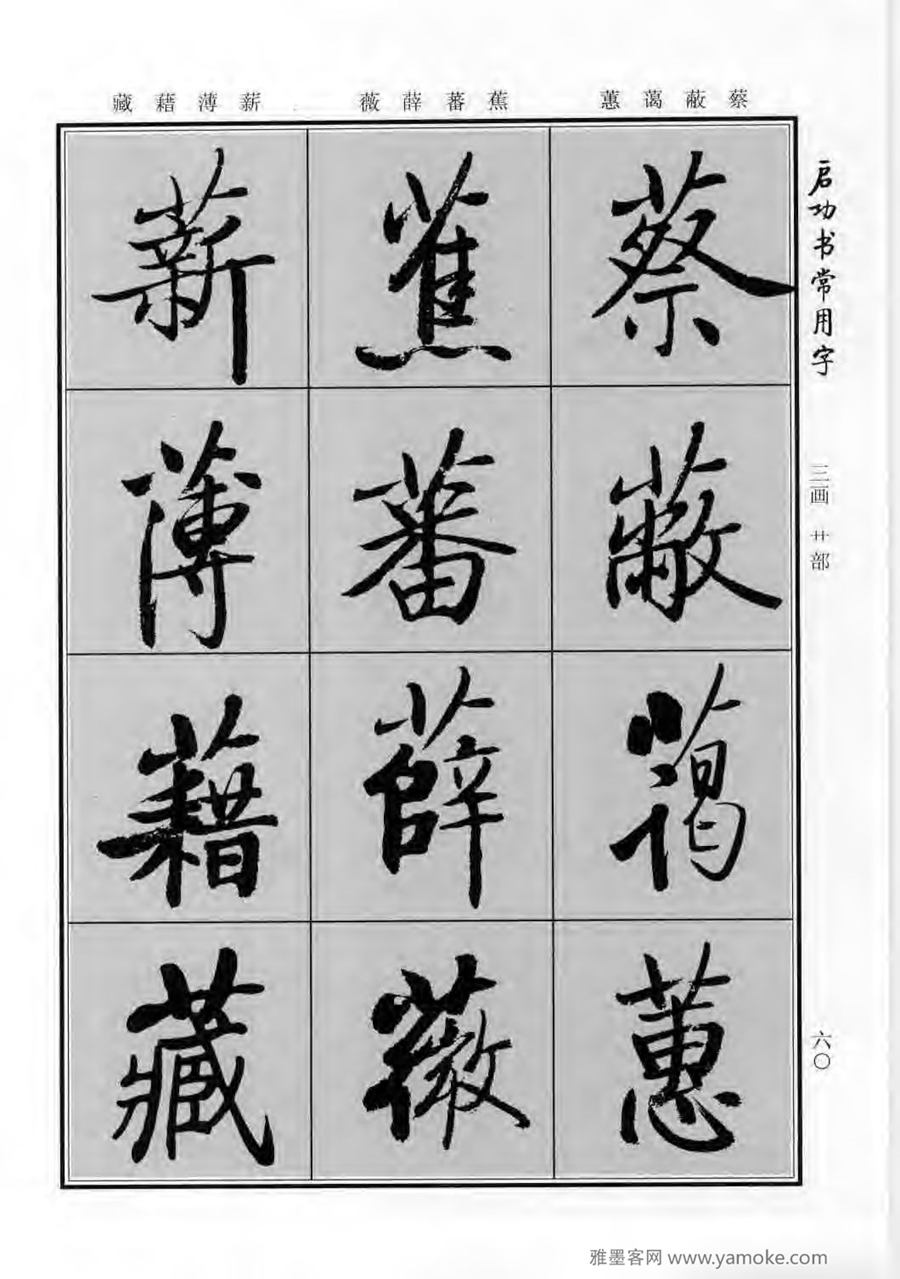 蔡蔽蔼蕙
蕉蕃薛薇
薪薄藉藏
启功书常用字
三画 艹部
六〇
蔡
蔽
蔼
蕙
蕉
蕃
薛
薇
薪
薄
藉
藏
雅墨客网 www.yamoke.com